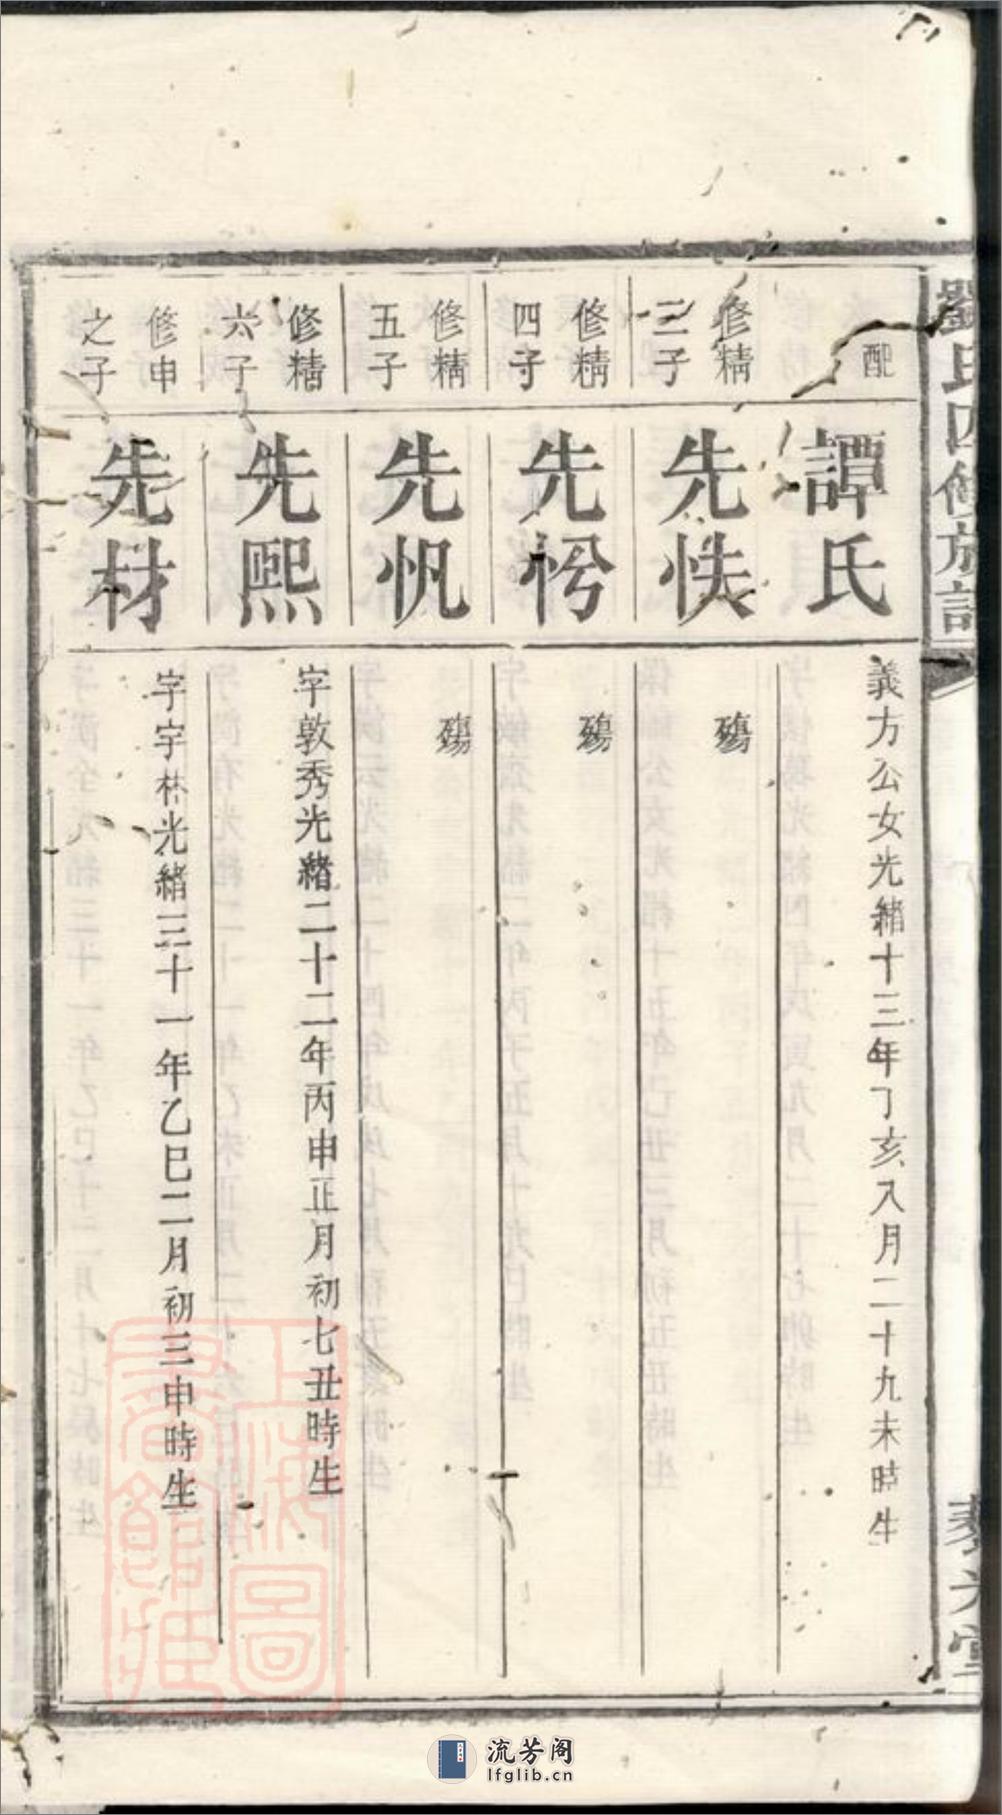 劉氏四修族譜
配
譚氏
義方公女光緒十三年丁亥八月二十九未時生
修精
三子
先怢
殤
修精
四子
先𢗊
殤
修精
五子
先帆
殤
修精
六子
先熙
字敦秀光緒二十二年丙申正月初七丑時生
修申
之子
先材
字宇林光緒三十一年乙巳二月初三申時生
上海圖書館藏
流芳阁
lfglib.cn